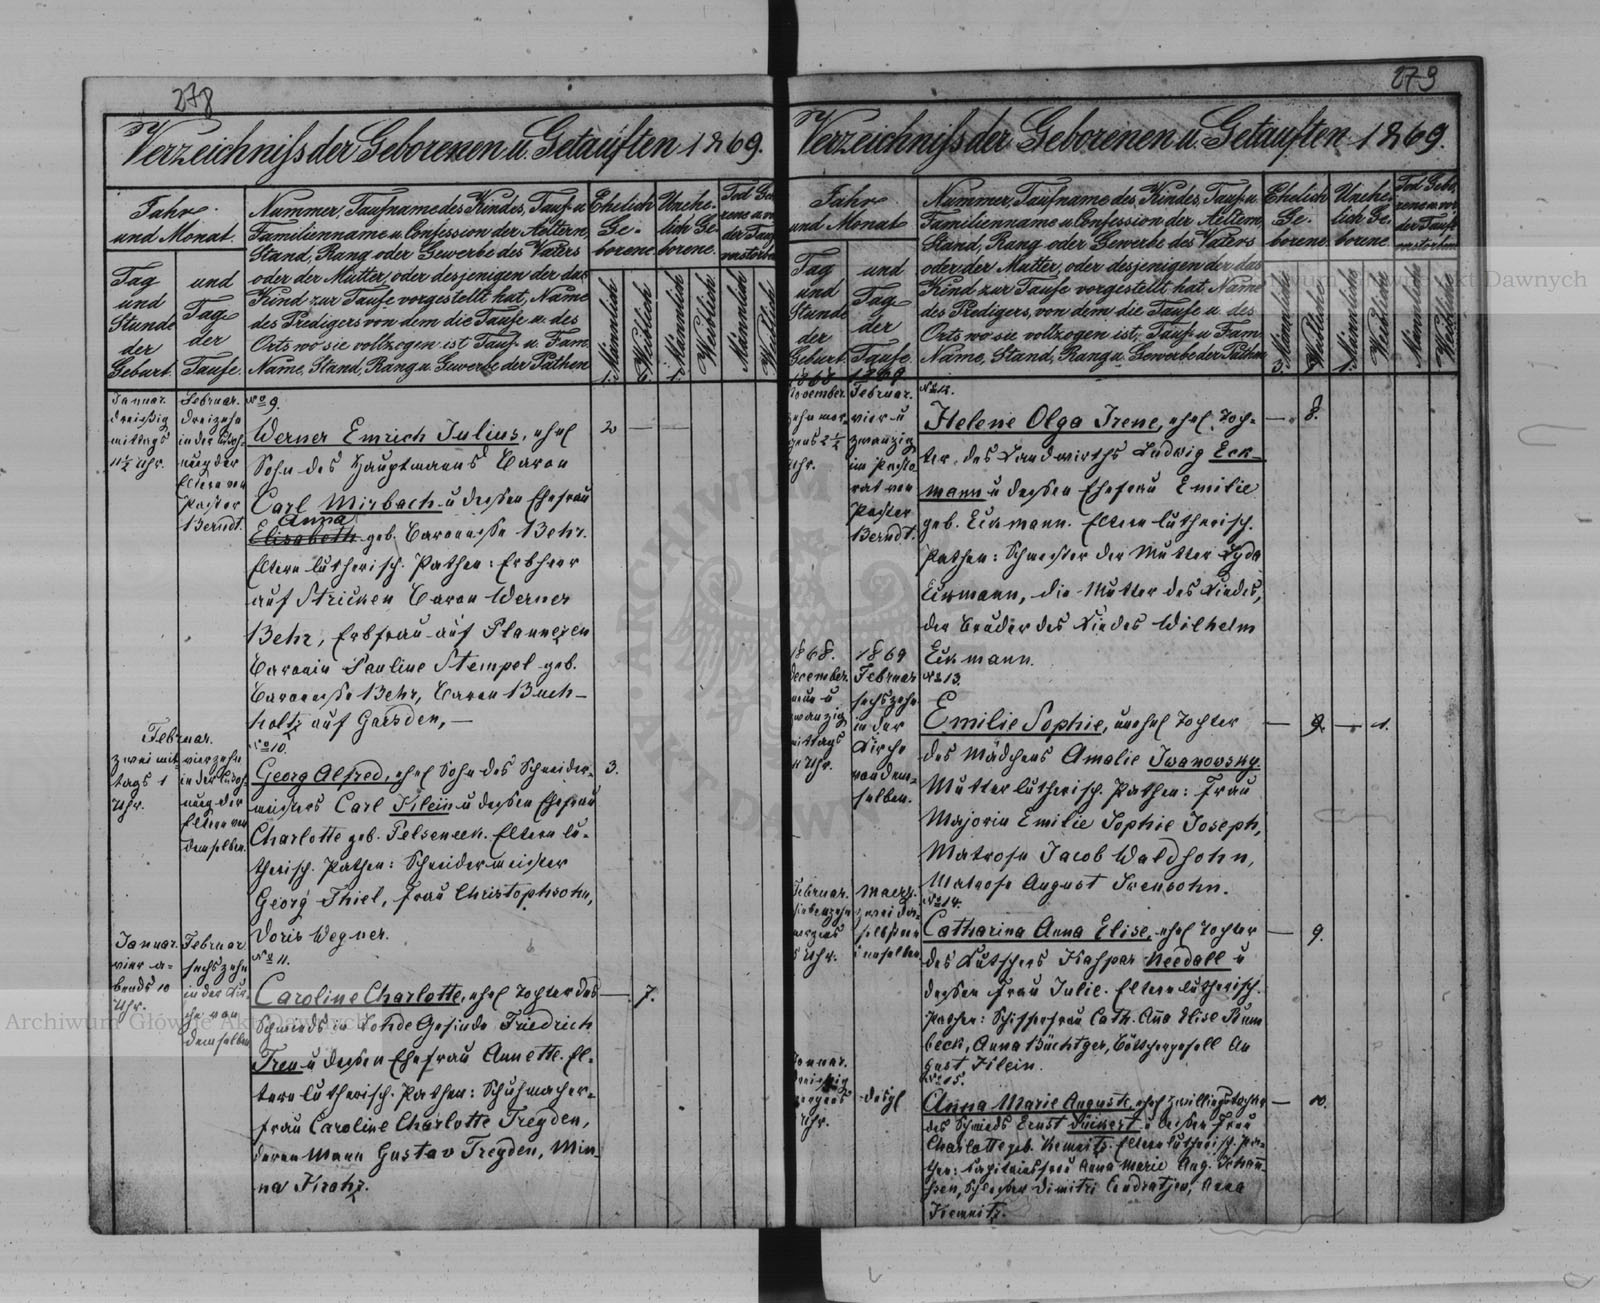 278
Verzeichniss der Geborenen u. Getauften 1869.
Jahr
und Monat.
Tag
und
Stunde
der
Geburt.
und
Tag
der
Taufe.
Nummer, Taufname des Kindes, Tauf- u
Familienname u. Confession der Aeltern,
Stand, Rang oder Gewerbe des Vaters
oder der Mutter, oder desjenigen der das
Kind zur Taufe vorgestellt hat, Name
des Predigers von dem die Taufe u. des
Orts wo sie vollzogen ist Tauf- u. Fam.
Name, Stand, Rang u. Gewerbe der Pathen
Ehelich
Ge-
borene
Unehe-
lich Ge-
borene.
Tod Ge-
der Taufe
Männlich
Weiblich
Männlich
Weiblich
Männlich
Weiblich
Januar.
dreissig
mittags
11½ Uhr.
Februar.
dreizehn
in der Woh-
nung der
Eltern von
Pastor
Berndt.
No 9.
Werner Emrich Julius, ehel
Sohn des Hauptmanns Baron
Carl Mirbach u dessen Ehefrau
Anna
Elisabeth geb. Baronesse Behr.
Eltern lutherisch. Pathen: Erbherr
auf Stricken Baron Werner
Behr, Erbfrau auf Plannezen
Baronin Pauline Stempel geb.
Baronesse Behr, Baron Buch-
holtz auf Garsden, —
2
Februar.
zwei mit-
tags 1
Uhr.
vierzehn
in der Woh-
nung der
Eltern von
demselben.
No 10.
Georg Alfred, ehel Sohn des Schneider-
meisters Carl Filein u dessen Ehefrau
Charlotte geb. Pelseneck. Eltern lu-
therisch. Pathen: Schneidermeister
Georg Thiel, Frau Christophsohn,
Doris Wegner.
3.
Januar.
vier a-
bends 10
Uhr.
Februar.
sechszehn
in der Kir-
che von
demselben
No 11.
Caroline Charlotte, ehel Tochter des
Schmieds in Gesinde Friedrich
Treu u dessen Ehefrau Annette. El-
tern lutherisch. Pathen: Schuhmacher-
frau Caroline Charlotte Freyden,
deren Mann Gustav Freyden, Min-
na
7.
279
Verzeichniss der Geborenen u. Getauften 1869.
Jahr
und Monat
Tag
und
Stunde
der
Geburt.
und
Tag
der
Taufe.
Nummer, Taufname des Kindes, Tauf- u.
Familienname u. Confession der Aeltern,
Stand, Rang oder Gewerbe des Vaters
oder der Mutter, oder desjenigen der das
Kind zur Taufe vorgestellt hat, Name
des Predigers, von dem die Taufe u. des
Orts wo sie vollzogen ist, Tauf- u. Fam.
Name, Stand, Rang u. Gewerbe der Pathen
Ehelich
Ge-
borene
Unehe-
lich Ge-
borene.
Männlich
Weibliche
Männlich
Weibliche
Männlich
Weiblich
1868
November.
zehn mor-
gens 2½
Uhr.
1869
Februar.
vier u
zwanzig
im Pasto-
rat von
Pastor
Berndt.
No 12.
Helene Olga Irene, ehel. Toch-
ter des Landwirths Ludwig Eck-
mann u dessen Ehefrau Emilie
geb. Eckmann. Eltern lutherisch.
Pathen: Schwester der Mutter Lyda
Eckmann, die Mutter des Kindes,
der Bruder des Kindes Wilhelm
Eckmann.
8.
1868.
December.
neun u
zwanzig
mittags
Uhr.
1869
Februar
sechszehn
in der
Kirche
von dem-
selben.
No 13.
Emilie Sophie, unehel Tochter
des Mädchens Amalie Iwanovsky.
Mutter lutherisch. Pathen: Frau
Majorin Emilie Sophie Joseph,
Matrose Jacob Waldsohn,
Matrose August Irensohn.
9. 1.
Februar.
siebenzehn
morgens
5 Uhr.
Maerz.
zwei da-
selbst von
demselben
No 14.
Catharina Anna Elise, ehel Tochter
des Kutschers Kaspar Needall u
dessen Frau Julie. Eltern lutherisch.
Pathen: Schifferfrau Cath. Ana Elise Rum-
beck, Anna Büchtger, Böttchergesell Au
gust Filein.
9.
Januar.
dreissig
morgens
Uhr.
desgl
No 15.
Anna Marie Auguste, ehel Zwillingstochter
des Schmieds Ernst u dessen Frau
Charlotte geb. Kemnitz. Eltern lutherisch. Pa-
then: Kapitainsfrau Anna Marie Aug. Johann-
sen, Schlosser Dimitri Anna
Kemnitz.
10.
Archiwum Główne Akt Dawnych